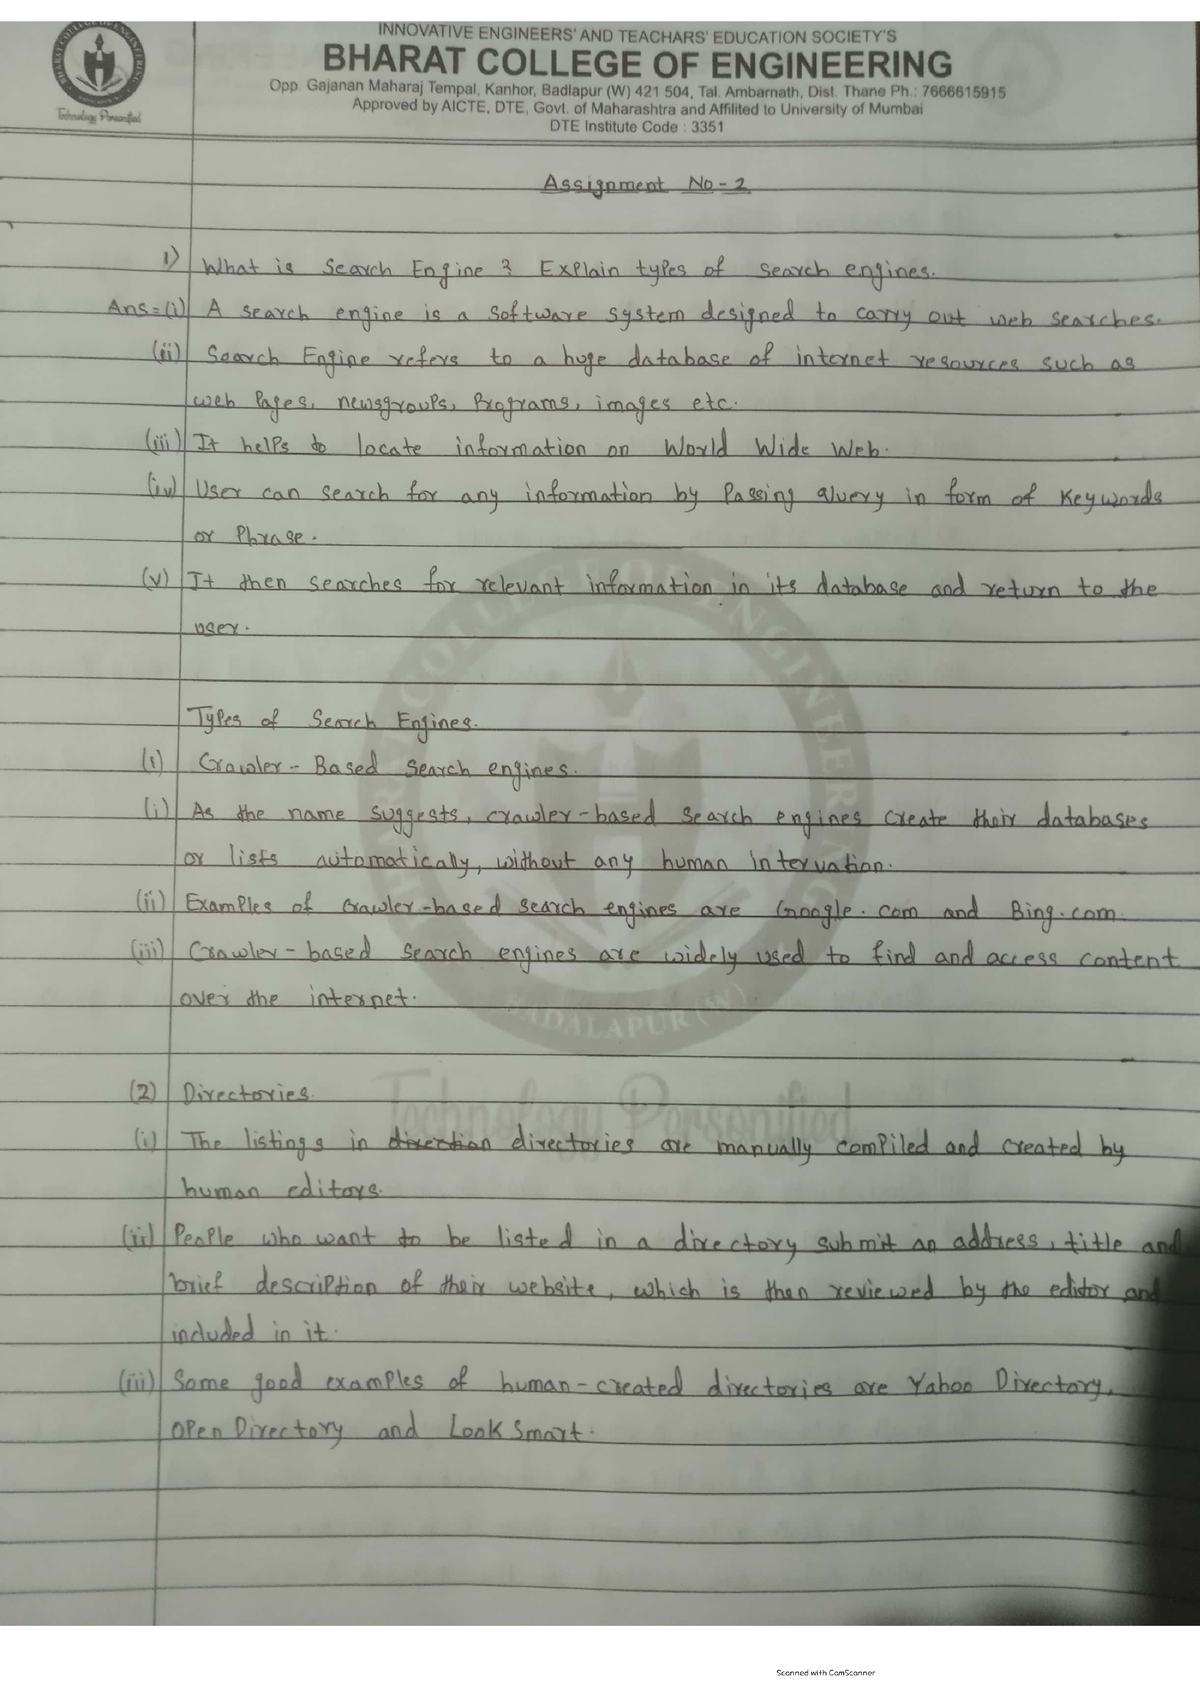 INNOVATIVE ENGINEERS' AND TEACHARS' EDUCATION SOCIETY'S
BHARAT COLLEGE OF ENGINEERING
Opp. Gajanan Maharaj Tempal, Kanhor, Badlapur (W) 421 504, Tal. Ambarnath, Dist. Thane Ph.: 7666615915
Approved by AICTE, DTE, Govt. of Maharashtra and Affilited to University of Mumbai
DTE Institute Code : 3351
Technology Personified
Assignment No-2
1) What is Search Engine ? Explain types of search engines.
Ans=(i) A search engine is a software system designed to carry out web searches.
(ii) Search Engine refers to a huge database of internet resources such as
web Pages, newsgroups, Programs, images etc.
(iii) It helps to locate information on World Wide Web.
(iv) User can search for any information by Passing query in form of Keywords
or Phrase.
(v) It then searches for relevant information in its database and return to the
user.
Types of Search Engines.
(1) Crawler-Based Search engines.
(i) As the name suggests, crawler-based search engines create their databases
or lists automatically, without any human intervation.
(ii) Examples of crawler-based search engines are Google.com and Bing.com.
(iii) Crawler-based search engines are widely used to find and access content
over the internet.
(2) Directories.
(i) The listings in direction directories are manually compiled and created by
human editors.
(ii) People who want to be listed in a directory submit an address, title and
brief description of their website, which is then reviewed by the editor and
included in it.
(iii) Some good examples of human-created directories are Yahoo Directory,
Open Directory and LookSmart.
BHARAT COLLEGE OF ENGINEERING
BADALAPUR (W)
Technology Personified
Scanned with CamScanner